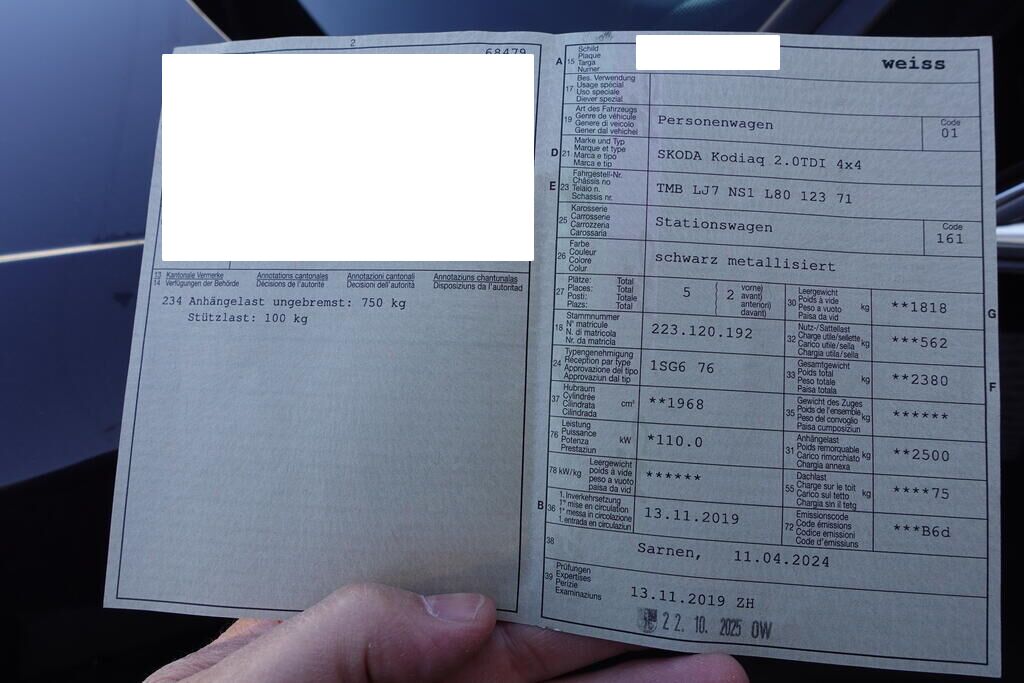 2
68479
13 Kantonale Vermerke Annotations cantonales Annotazioni cantonali Annotaziuns chantunalas
14 Verfügungen der Behörde Décisions de l'autorité Decisioni dell'autorità Disposiziuns da l'autoritad
234 Anhängelast ungebremst: 750 kg
Stützlast: 100 kg
A 15 Schild
Plaque
Targa
Numer
weiss
17 Bes. Verwendung
Usage spécial
Uso speciale
Diever spezial
19 Art des Fahrzeugs
Genre de véhicule
Genere di veicolo
Gener dal vehichel
Personenwagen
Code
01
D 21 Marke und Typ
Marque et type
Marca e tipo
Marca e tip
SKODA Kodiaq 2.0TDI 4x4
E 23 Fahrgestell-Nr.
Châssis no
Telaio n.
Schassis nr.
TMB LJ7 NS1 L80 123 71
25 Karosserie
Carrosserie
Carrozzeria
Carossaria
Stationswagen
Code
161
26 Farbe
Couleur
Colore
Colur
schwarz metallisiert
27 Plätze: Total
Places: Total
Posti: Totale
Plazs: Total
5
2
vorne)
avant)
anteriori)
davant)
30 Leergewicht
Poids à vide
Peso a vuoto
Paisa da vid
kg
**1818
G
18 Stammnummer
N° matricule
N. di matricola
Nr. da matricla
223.120.192
32 Nutz-/Sattellast
Charge utile/sellette
Carico utile/sella
Chargia utila/sella
kg
***562
24 Typengenehmigung
Réception par type
Approvazione del tipo
Approvaziun dal tip
1SG6 76
33 Gesamtgewicht
Poids total
Peso totale
Paisa totala
kg
**2380
F
37 Hubraum
Cylindrée
Cilindrata
Cilindrada
cm³
**1968
35 Gewicht des Zuges
Poids de l'ensemble
Peso del convoglio
Paisa cumposiziun
kg
******
76 Leistung
Puissance
Potenza
Prestaziun
kW
*110.0
31 Anhängelast
Poids remorquable
Carico rimorchiato
Chargia annexa
kg
**2500
78 kW/kg Leergewicht
poids à vide
peso a vuoto
paisa da vid
******
55 Dachlast
Charge sur le toit
Carico sul tetto
Chargia sin il tetg
kg
****75
B 36 1. Inverkehrsetzung
1re mise en circulation
1a messa in circolazione
1. entrada en circulaziun
13.11.2019
72 Emissionscode
Code émissions
Codice emissioni
Code d'emissiuns
***B6d
38
Sarnen, 11.04.2024
39 Prüfungen
Expertises
Perizie
Examinaziuns
13.11.2019 ZH
22. 10. 2025 OW